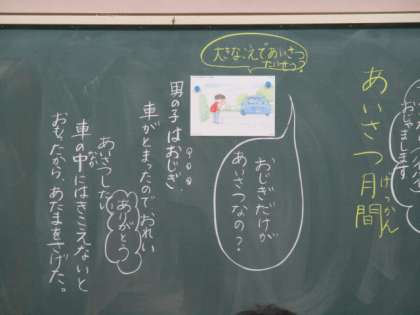 おじゃまします
あいさつ月間
げっかん
大きなこえであいさつ?
おじぎだけが
あいさつなの？
男の子はおじぎ。
車がとまったのでおれい
あいさつ
ありがとう
車の中にはきこえないと
なか
おもったから、あたまをさげた。